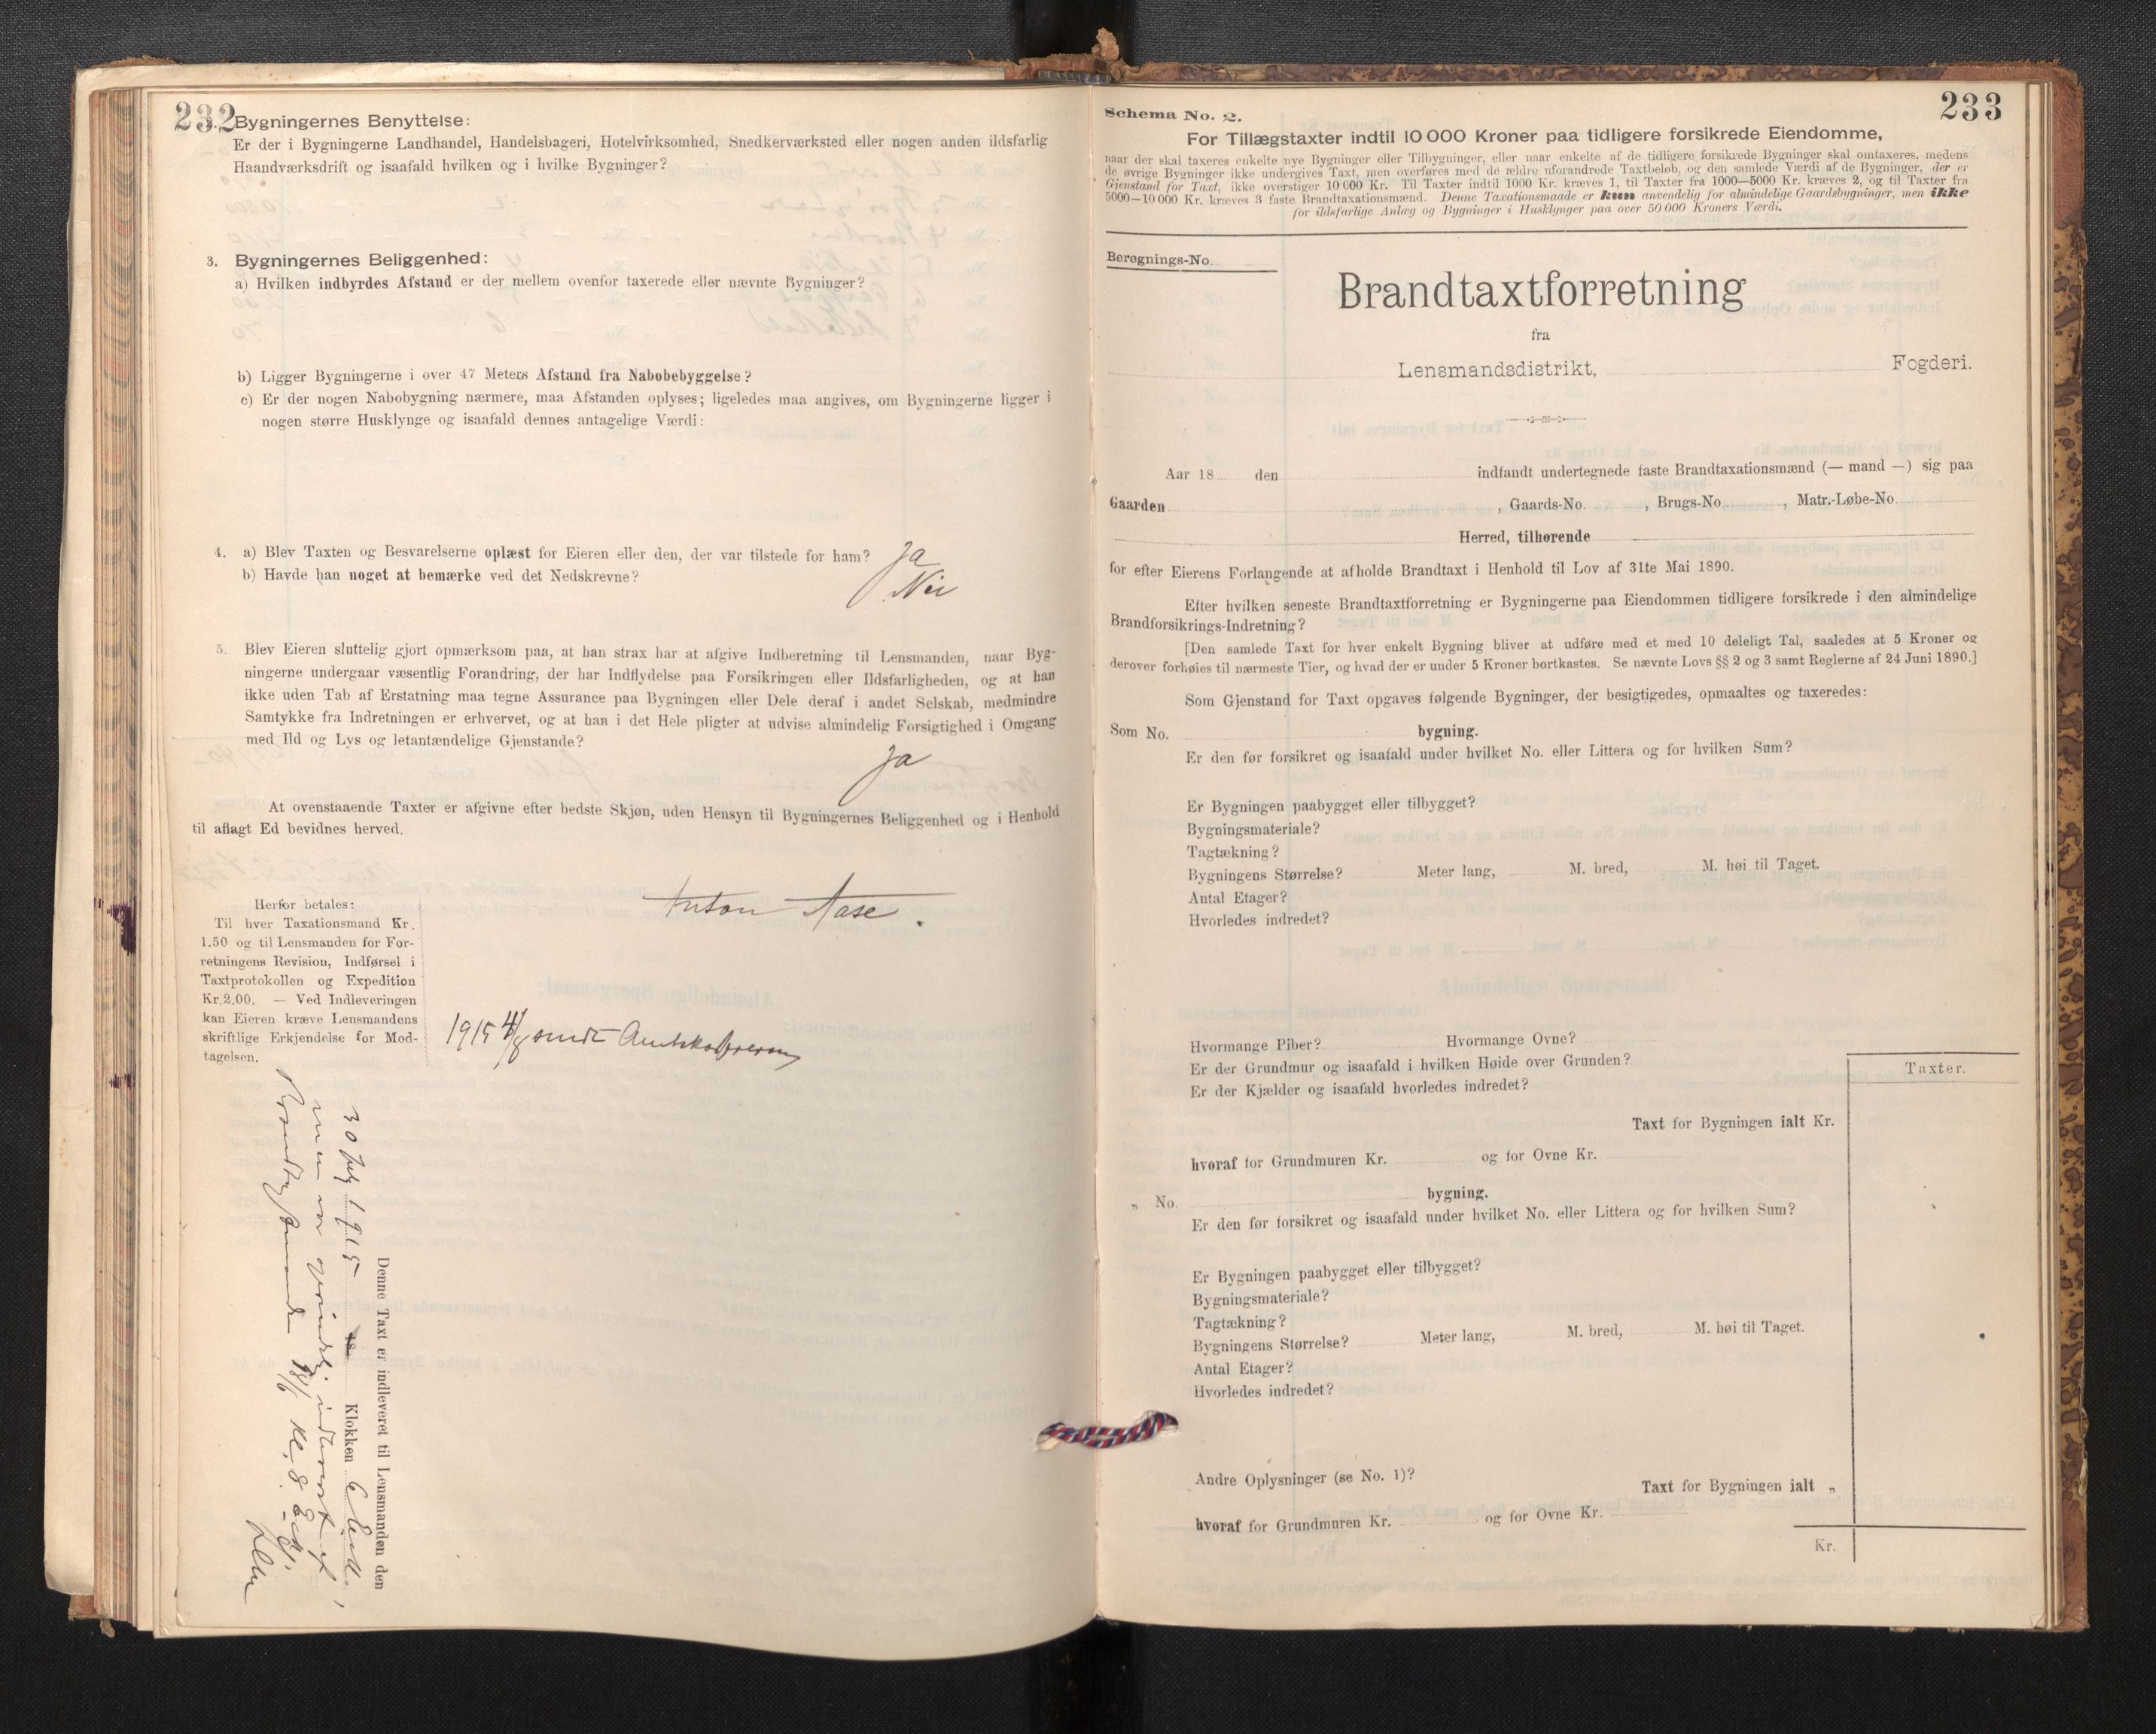 232
2. Bygningernes Benyttelse:
Er der i Bygningerne Landhandel, Handelsbageri, Hotelvirksomhed, Snedkerværksted eller nogen anden ildsfarlig
Haandværksdrift og isaafald hvilken og i hvilke Bygninger?
3. Bygningernes Beliggenhed:
a) Hvilken indbyrdes Afstand er der mellem ovenfor taxerede eller nævnte Bygninger?
b) Ligger Bygningerne i over 47 Meters Afstand fra Nabobebyggelse?
c) Er der nogen Nabobygning nærmere, maa Afstanden oplyses; ligeledes maa angives, om Bygningerne ligger i
nogen større Husklynge og isaafald dennes antagelige Værdi:
4. a) Blev Taxten og Besvarelserne oplæst for Eieren eller den, der var tilstede for ham? Ja
b) Havde han noget at bemærke ved det Nedskrevne? Nei
5. Blev Eieren sluttelig gjort opmærksom paa, at han strax har at afgive Indberetning til Lensmanden, naar Byg-
ningerne undergaar væsentlig Forandring, der har Indflydelse paa Forsikringen eller Ildsfarligheden, og at han
ikke uden Tab af Erstatning maa tegne Assurance paa Bygningen eller Dele deraf i andet Selskab, medmindre
Samtykke fra Indretningen er erhvervet, og at han i det Hele pligter at udvise almindelig Forsigtighed i Omgang
med Ild og Lys og letantændelige Gjenstande?
Ja
At ovenstaaende Taxter er afgivne efter bedste Skjøn, uden Hensyn til Bygningernes Beliggenhed og i Henhold
til aflagt Ed bevidnes herved.
Anton Aase.
Herfor betales:
Til hver Taxationsmand Kr.
1.50 og til Lensmanden for For-
retningens Revision, Indførsel i
Taxtprotokollen og Expedition
Kr. 2.00. — Ved Indleveringen
kan Eieren kræve Lensmandens
skriftlige Erkjendelse for Mod-
tagelsen.
1915 4/8 sendt
Denne Taxt er indleveret til Lensmanden den
30 July 1915 18 Klokken 6
men var indleveret af
Kl. 8
233
Schema No. 2.
For Tillægstaxter indtil 10 000 Kroner paa tidligere forsikrede Eiendomme,
naar der skal taxeres enkelte nye Bygninger eller Tilbygninger, eller naar enkelte af de tidligere forsikrede Bygninger skal omtaxeres, medens
de øvrige Bygninger ikke undergives Taxt, men overføres med de ældre uforandrede Taxtbeløb, og den samlede Værdi af de Bygninger, der er
Gjenstand for Taxt, ikke overstiger 10 000 Kr. Til Taxter indtil 1000 Kr. kræves 1, til Taxter fra 1000—5000 Kr. kræves 2, og til Taxter fra
5000—10 000 Kr. kræves 3 faste Brandtaxationsmænd. Denne Taxationsmaade er kun anvendelig for almindelige Gaardsbygninger, men ikke
for ildsfarlige Anlæg og Bygninger i Husklynger paa over 50 000 Kroners Værdi.
Beregnings-No.
Brandtaxtforretning
fra
Lensmandsdistrikt, Fogderi.
Aar 18 den indfandt undertegnede faste Brandtaxationsmænd (— mand —) sig paa
Gaarden , Gaards-No. , Brugs-No. , Matr.-Løbe-No.
Herred, tilhørende
for efter Eierens Forlangende at afholde Brandtaxt i Henhold til Lov af 31te Mai 1890.
Efter hvilken seneste Brandtaxtforretning er Bygningerne paa Eiendommen tidligere forsikrede i den almindelige
Brandforsikrings-Indretning?
[Den samlede Taxt for hver enkelt Bygning bliver at udføre med et med 10 deleligt Tal, saaledes at 5 Kroner og
derover forhøies til nærmeste Tier, og hvad der er under 5 Kroner bortkastes. Se nævnte Lovs §§ 2 og 3 samt Reglerne af 24 Juni 1890.]
Som Gjenstand for Taxt opgaves følgende Bygninger, der besigtigedes, opmaaltes og taxeredes:
Som No. bygning.
Er den før forsikret og isaafald under hvilket No. eller Littera og for hvilken Sum?
Er Bygningen paabygget eller tilbygget?
Bygningsmateriale?
Tagtækning?
Bygningens Størrelse? Meter lang, M. bred, M. høi til Taget.
Antal Etager?
Hvorledes indredet?
Hvormange Piber? Hvormange Ovne?
Er der Grundmur og isaafald i hvilken Høide over Grunden?
Er der Kjælder og isaafald hvorledes indredet?
Taxter.
Taxt for Bygningen ialt Kr.
hvoraf for Grundmuren Kr. og for Ovne Kr.
„ No. bygning.
Er den før forsikret og isaafald under hvilket No. eller Littera og for hvilken Sum?
Er Bygningen paabygget eller tilbygget?
Bygningsmateriale?
Tagtækning?
Bygningens Størrelse? Meter lang, M. bred, M. høi til Taget.
Antal Etager?
Hvorledes indredet?
Andre Oplysninger (se No. 1)?
Taxt for Bygningen ialt „
hvoraf for Grundmuren Kr. og for Ovne Kr.
Kr.